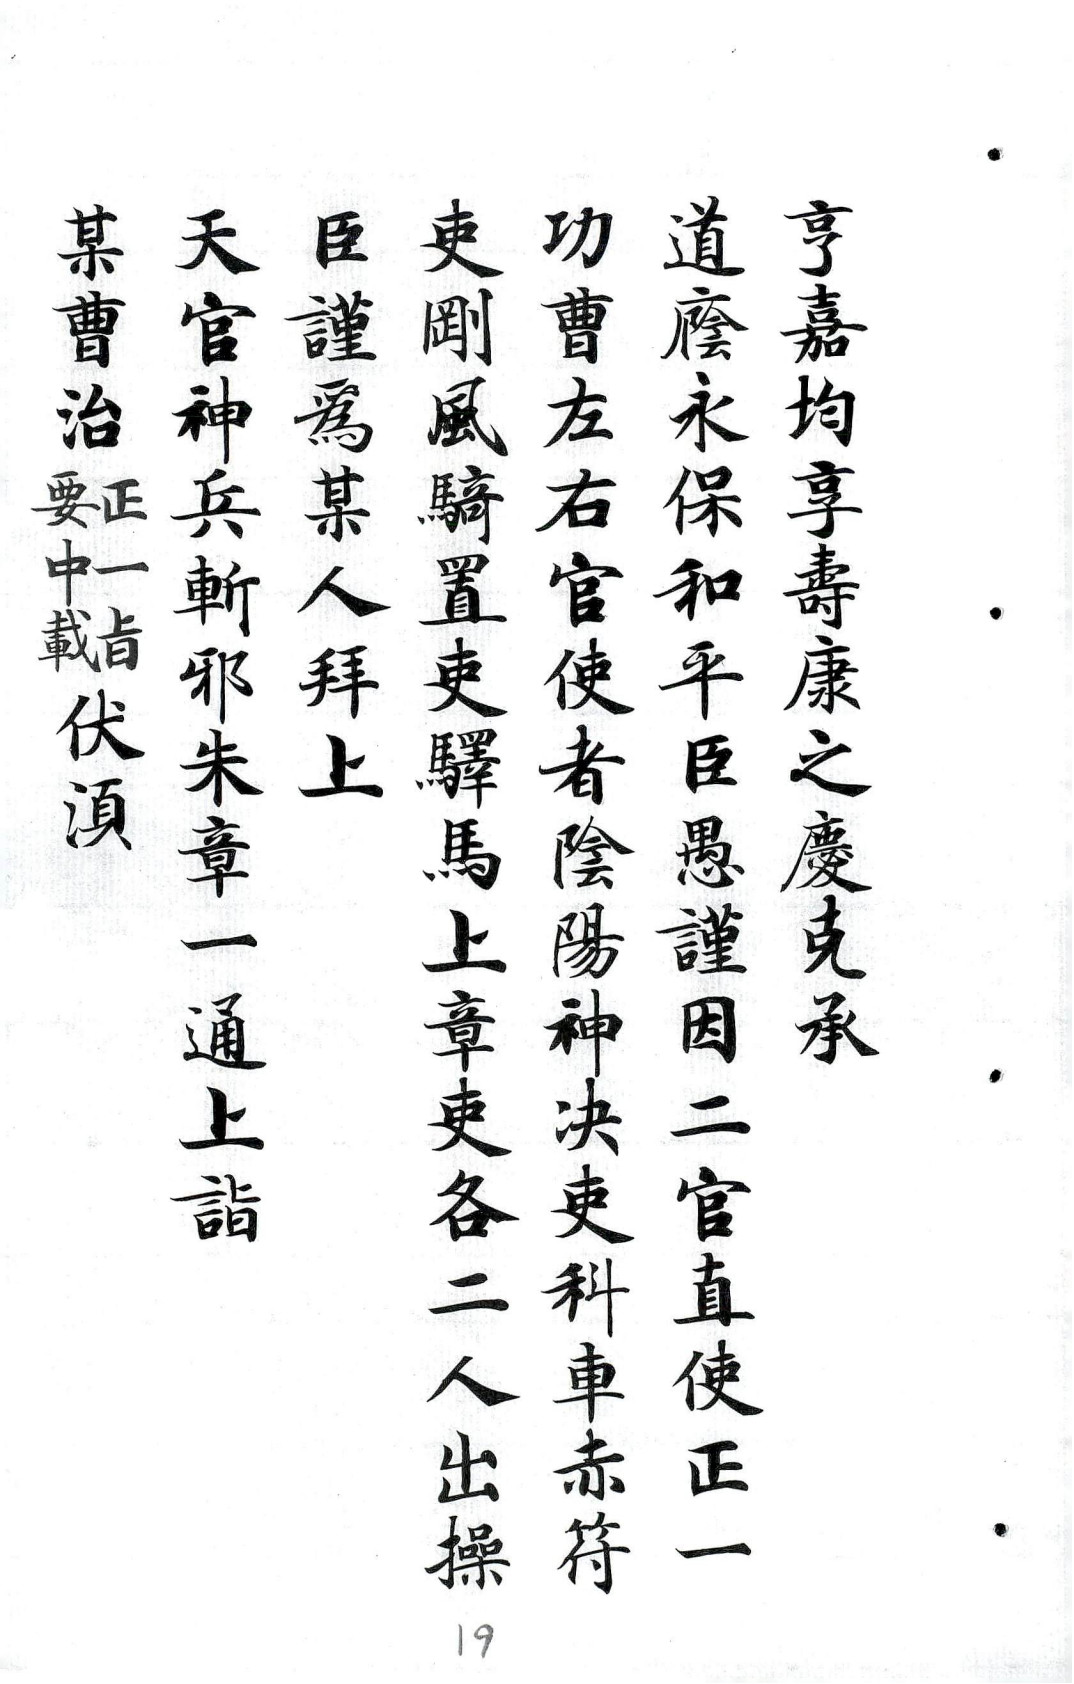 亨嘉均享壽康之慶克承
道廕永保和平臣愚謹因二官直使正一
功曹左右官使者陰陽神决吏科車赤符
吏剛風騎置吏驛馬上章吏各二人出操
臣謹爲某人拜上
天官神兵斬邪朱章一通上詣
某曹治正一旨要中載伏湏
19